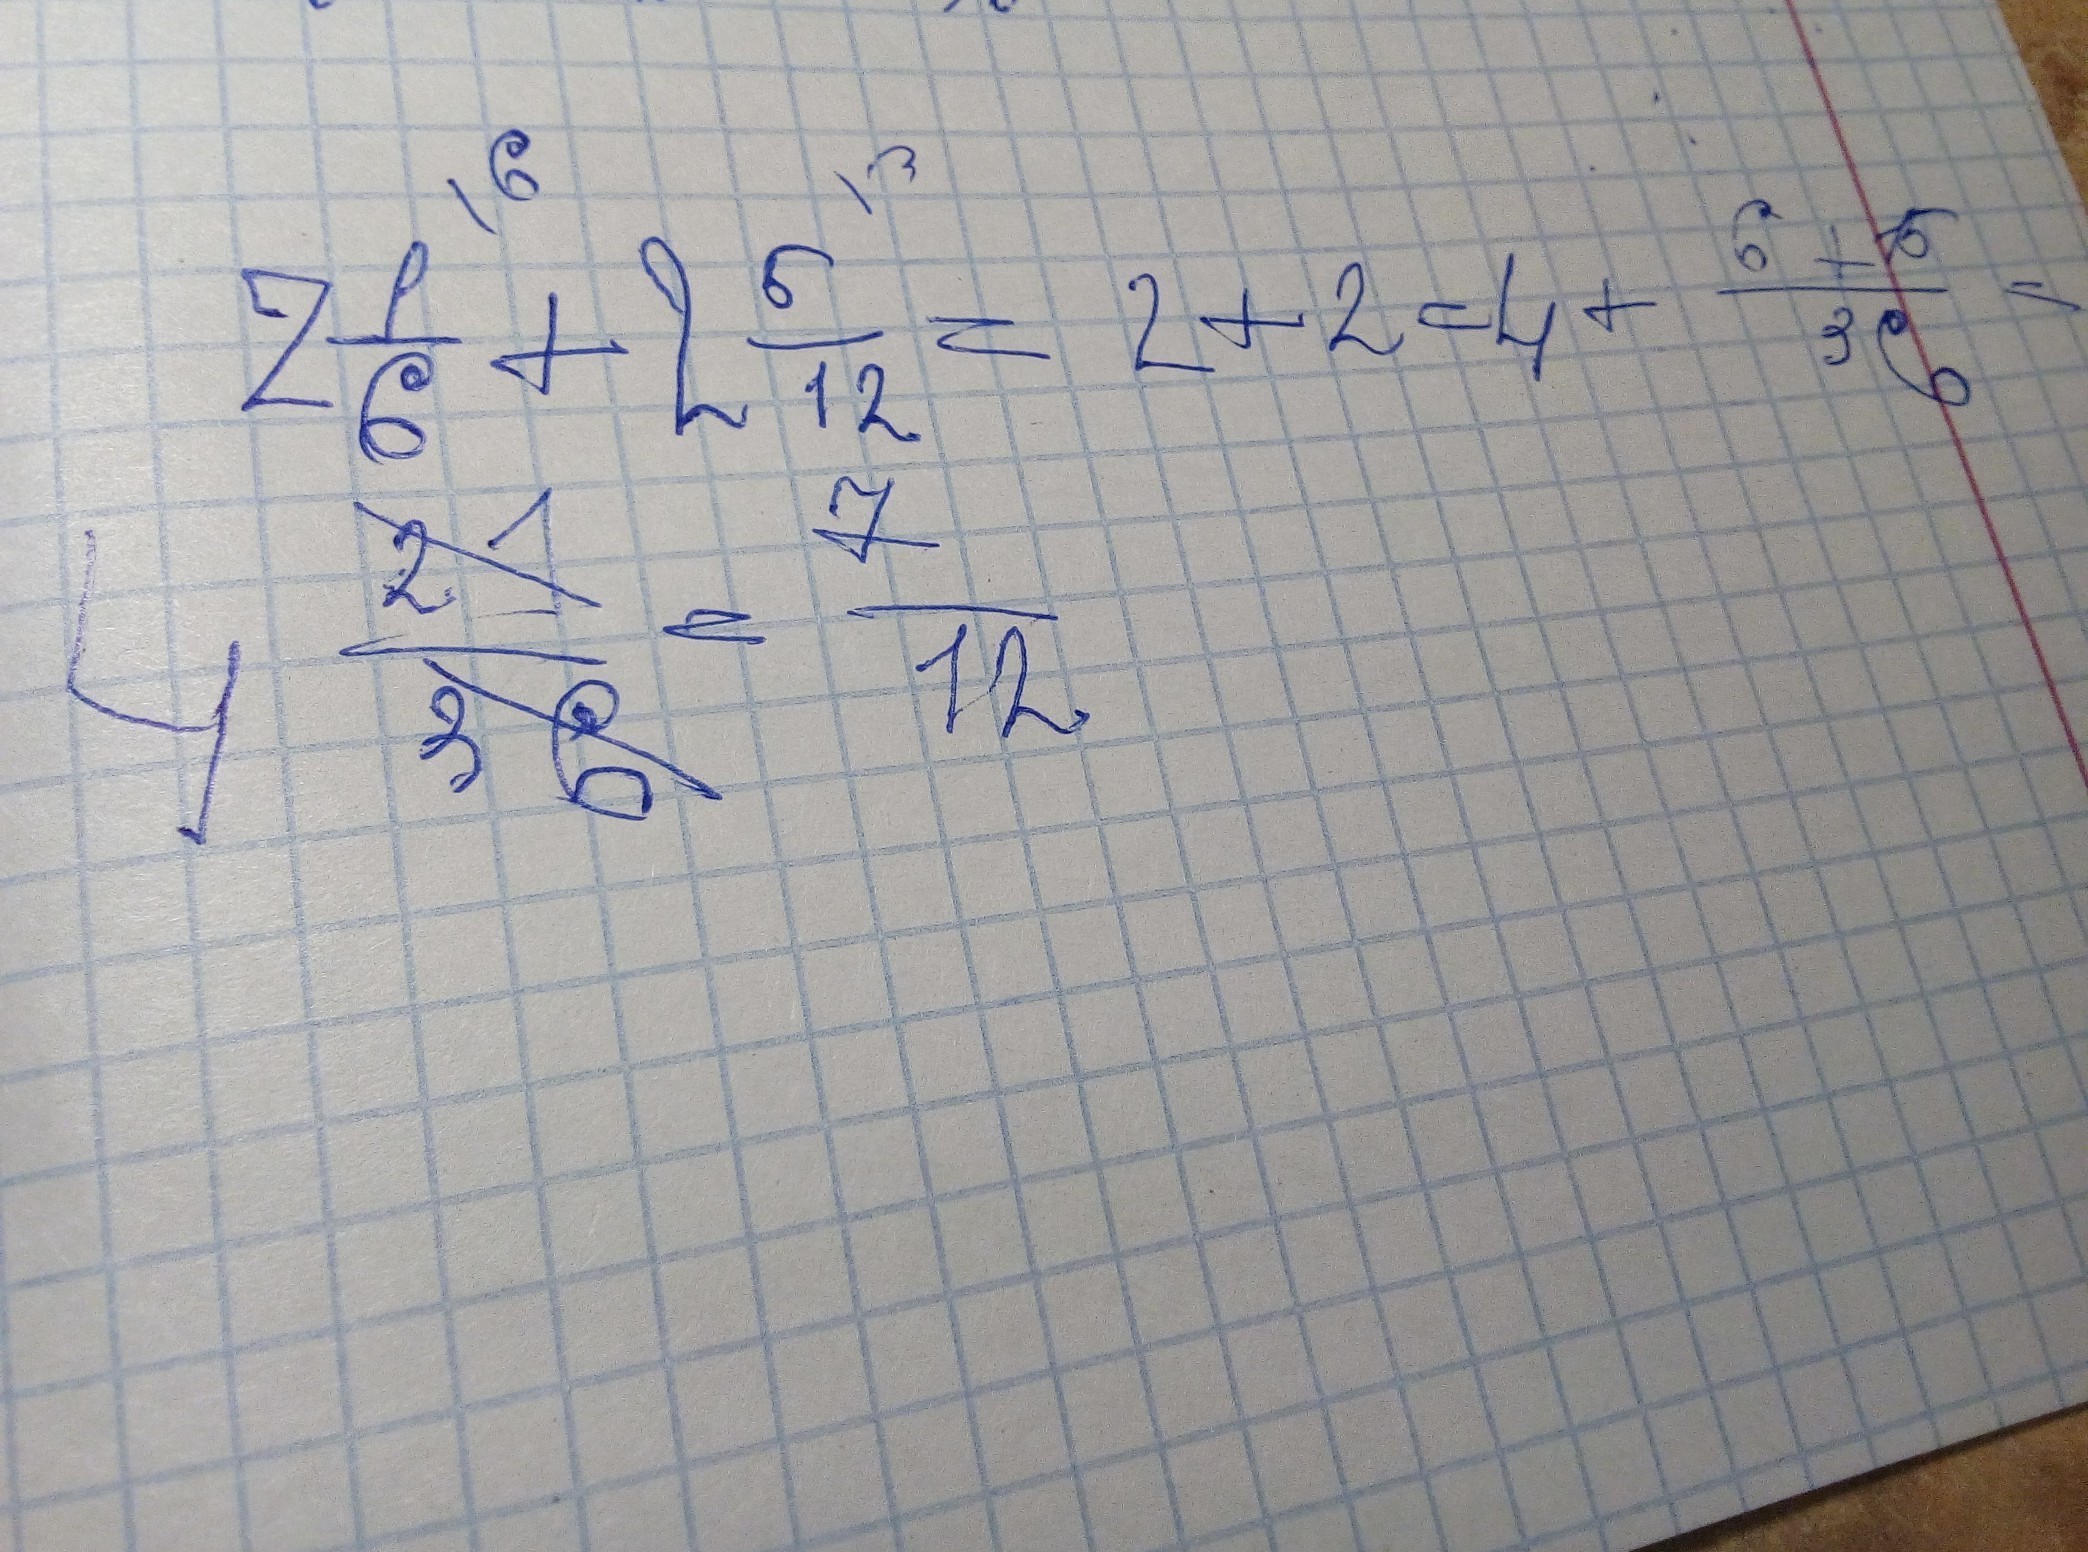 2 1/6 \6 + 2 5/12 \3 = 2+2=4+ 6+15/36 =
4 21/36 = 7/12